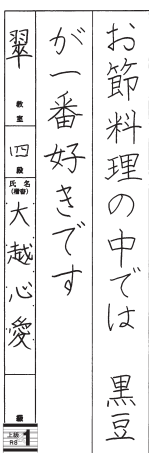 お節料理の中では　黒豆
が一番好きです
翠 教室 四 段 氏名(楷書) 大越心愛 級
上級 R8 1